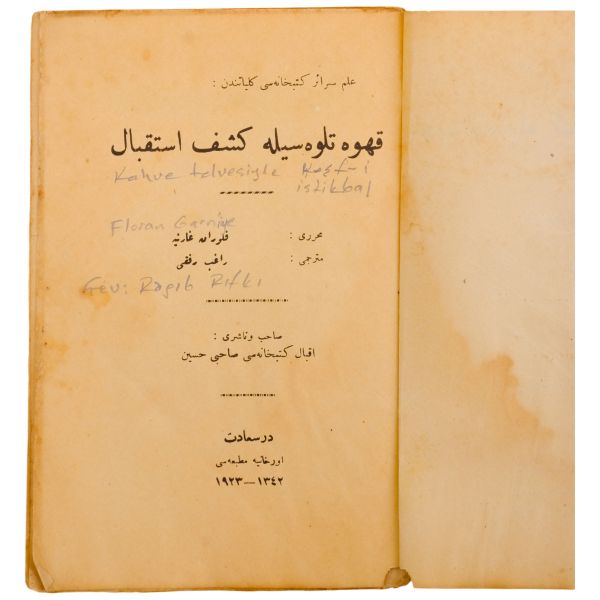 علم سرائر كتبخانه‌سی كلیاتندن :
قهوه تلوه‌سیله كشف استقبال
Kahve telvesiyle Keşf-i
istikbal
Floran Garniye
محرری : فلوران غارنیه
مترجمی : راغب رفقی
Çev: Ragıb Rıfkı
صاحب و ناشری :
اقبال كتبخانه‌سی صاحبی حسین
در سعادت
اورخانیه مطبعه‌سی
١٣٤٢—١٩٢٣